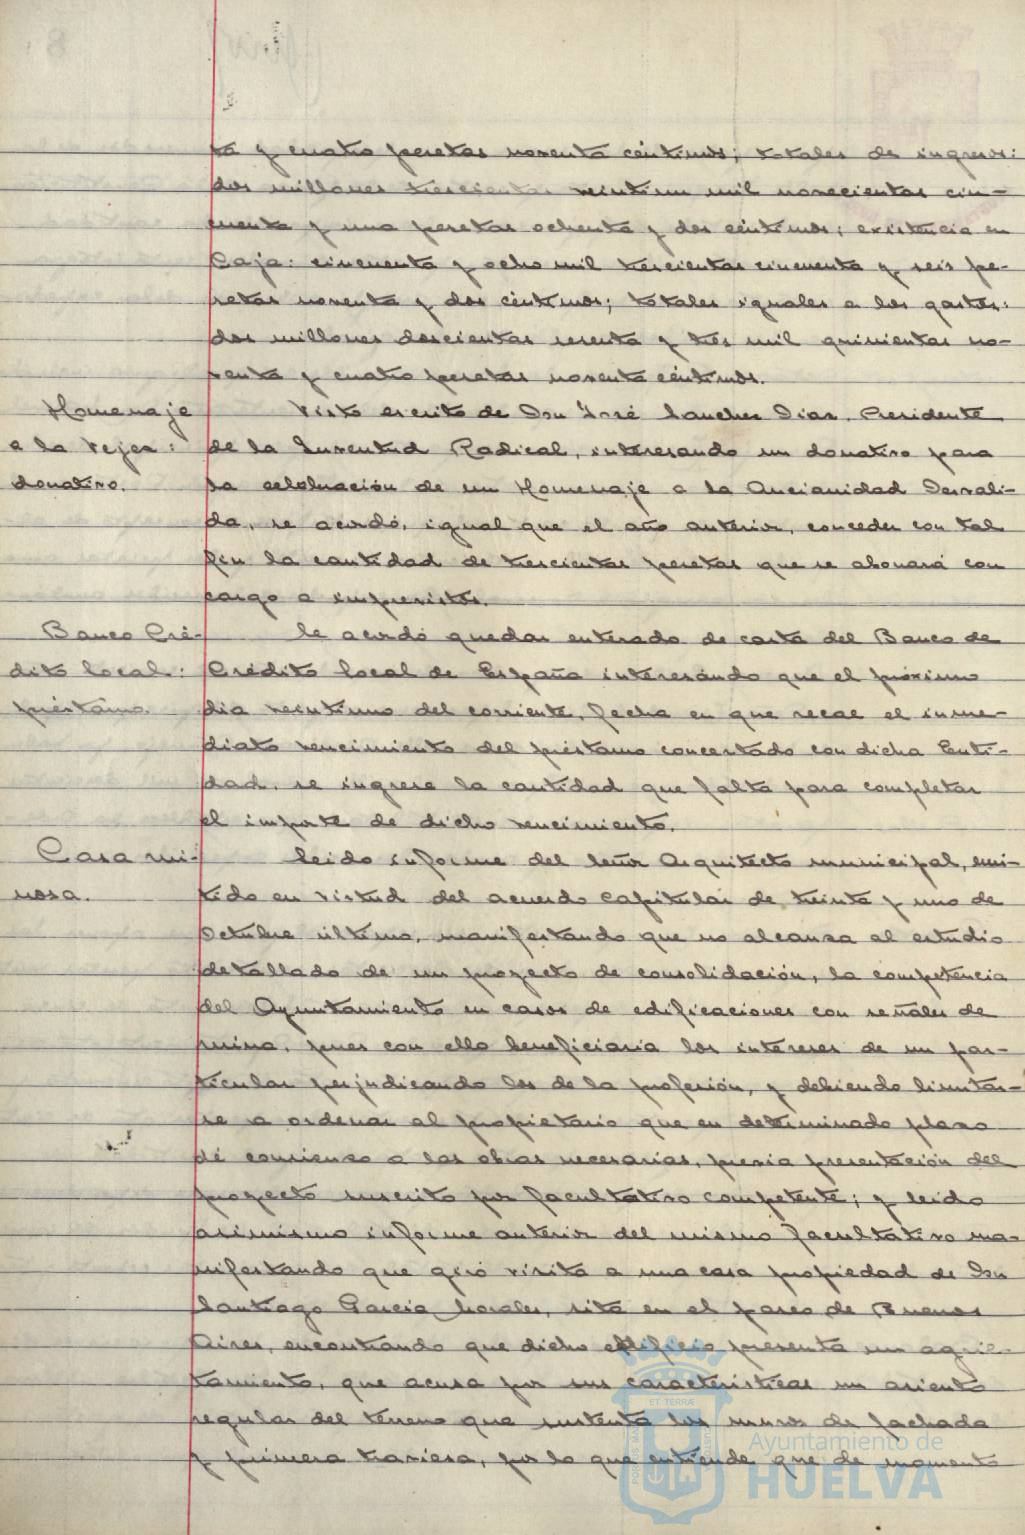 ta y cuatro pesetas noventa céntimos; totales de ingresos:
dos millones trescientas veintiun mil novecientas cin-
cuenta y una pesetas ochenta y dos céntimos; existencia en
Caja: cincuenta y ocho mil trescientas cincuenta y seis pe-
setas noventa y dos céntimos; totales iguales a los gastos:
dos millones doscientas sesenta y tres mil quinientas no-
venta y cuatro pesetas noventa céntimos.
Homenaje
a la Vejez:
donativo.
Visto escrito de Don José Sanchez Diaz, Presidente
de la Juventud Radical, interesando un donativo para
la celebración de un Homenaje a la Ancianidad Desvali-
da, se acordó, igual que el año anterior, conceder con tal
fin la cantidad de trescientas pesetas que se abonará con
cargo a imprevistos.
Banco Cré-
dito local:
préstamo.
Se acordó quedar enterado de carta del Banco de
Crédito Local de España interesando que el próximo
dia veintiuno del corriente, fecha en que recae el inme-
diato vencimiento del préstamo concertado con dicha Enti-
dad, se ingrese la cantidad que falta para completar
el importe de dicho vencimiento.
Casa rui-
nosa.
Leido informe del Señor Arquitecto municipal, emi-
tido en virtud del acuerdo capitular de treinta y uno de
Octubre último, manifestando que no alcanza al estudio
detallado de un proyecto de consolidación, la competencia
del Ayuntamiento en casos de edificaciones con señales de
ruina, pues con ello beneficiaria los intereses de un par-
ticular perjudicando los de la profesión, y debiendo limitar-
se a ordenar al propietario que en determinado plazo
dé comienzo a las obras necesarias, previa presentación del
proyecto suscrito por facultativo competente; y leido
asimismo informe anterior del mismo facultativo ma-
nifestando que giró visita a una casa propiedad de Don
Santiago Garcia Morales, sita en el paseo de Buenos
Aires, encontrando que dicho edificio presenta un agrie-
tamiento, que acusa por sus caracteristicas un asiento
regular del terreno que sustenta los muros de fachada
y primera traviesa, por lo que entiende que de momento
Ayuntamiento de
HUELVA